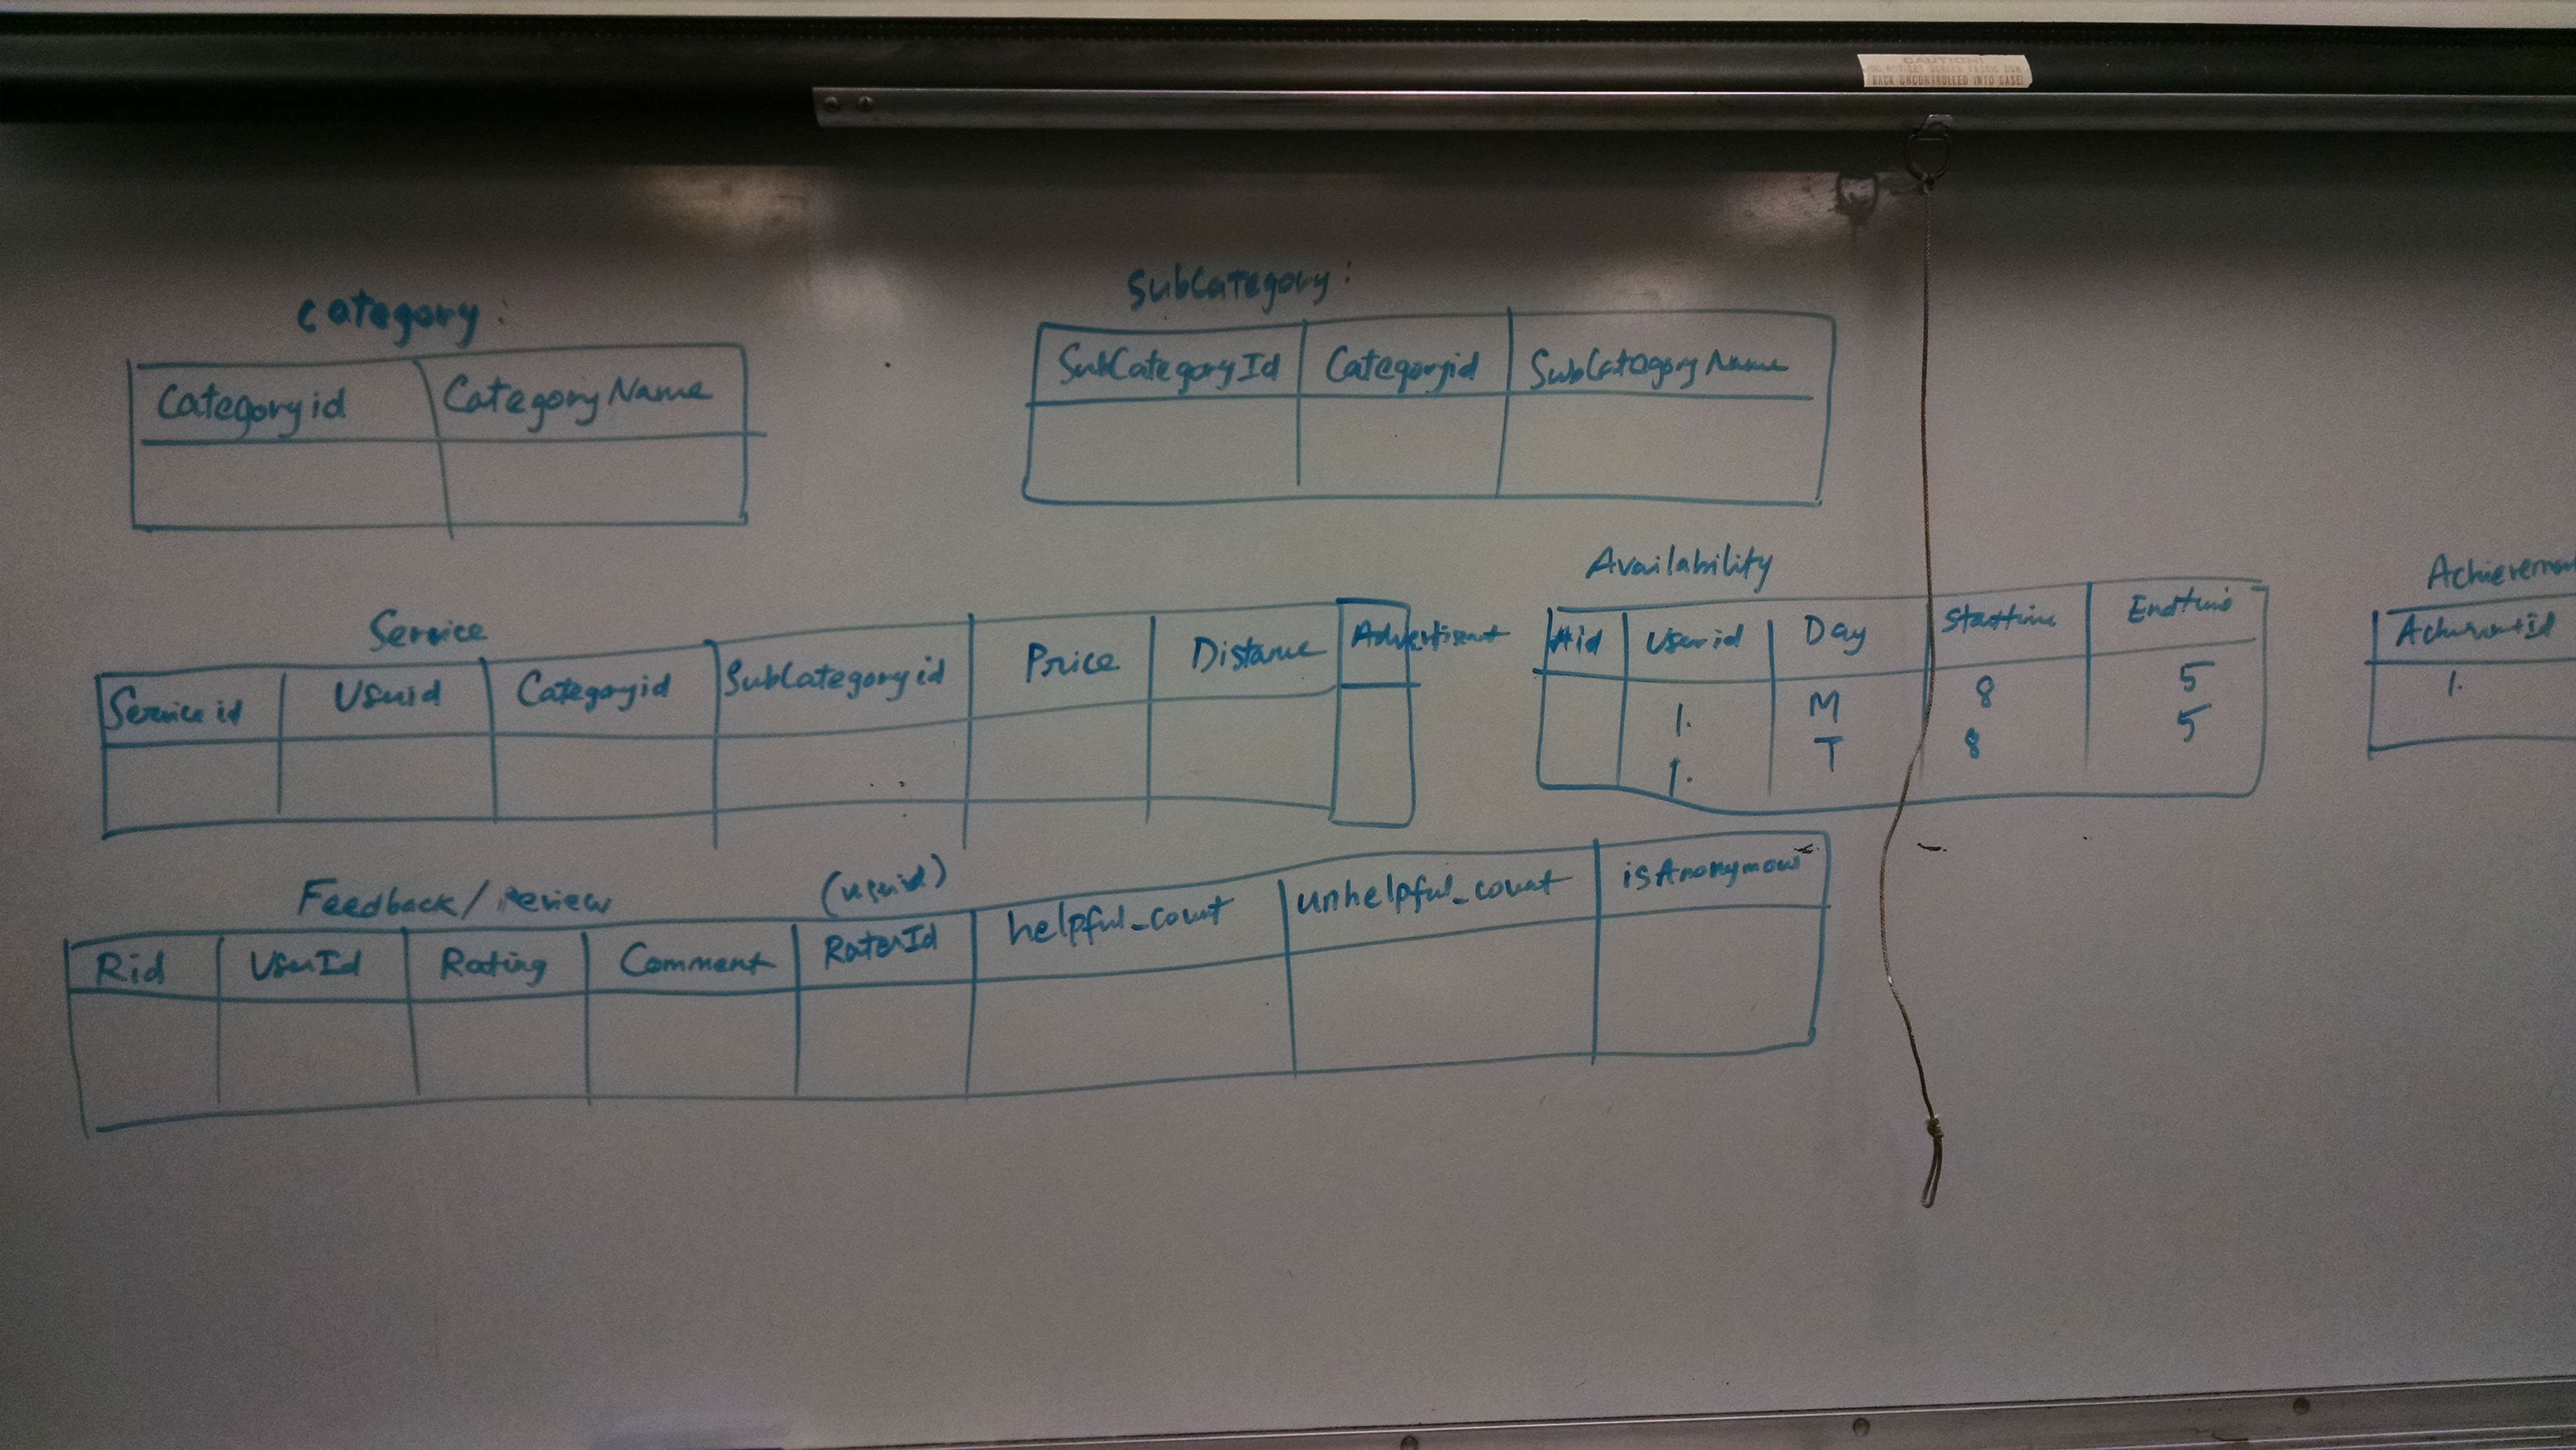 CAUTION!
BACK UNCONTROLLED INTO CASE!
category:
Categoryid CategoryName
SubCategory:
SubCategoryId Categoryid SubCategoryName
Service
Service id Userid Categoryid SubCategoryid Price Distance Advertisment
Availability
Aid Userid Day Starttime Endtime
1. M 8 5
1. T 8 5
Achievement
AchievmentId
1.
Feedback/review
(userid)
Rid UserId Rating Comment RaterId helpful_count unhelpful_count isAnonymous